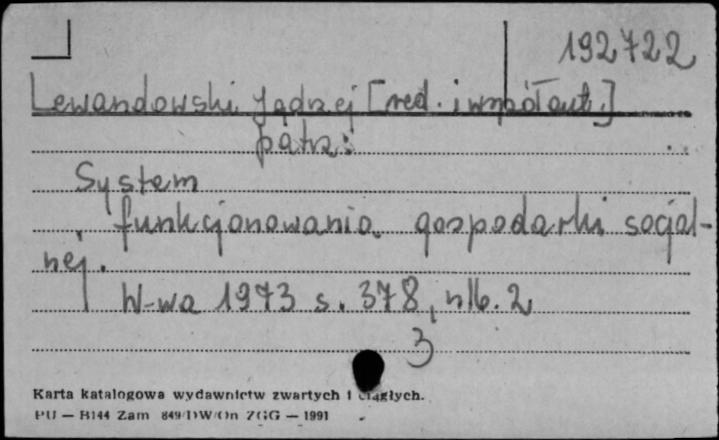 192722
Lewandowski Jędrzej [red. i współaut.]
patrz:
System
funkcjonowania gospodarki socjal-
nej.
W-wa 1973 s. 378, nlb. 2
3
Karta katalogowa wydawnictw zwartych i ciągłych.
PU — B144 Zam 849/DW/On ZGG — 1991